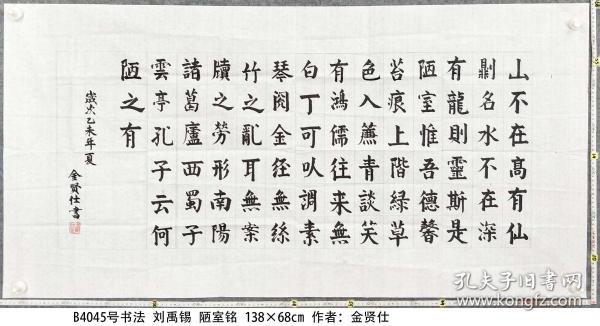 山不在高有仙
則名水不在深
有龍則靈斯是
陋室惟吾德馨
苔痕上階緑草
色入簾青談笑
有鴻儒往来無
白丁可以調素
琴閱金經無絲
竹之亂耳無案
牘之勞形南陽
諸葛廬西蜀子
雲亭孔子云何
陋之有
歲次乙未年夏
金賢仕書
孔夫子旧书网
www.kongfz.com
B4045号书法 刘禹锡 陋室铭 138×68cm 作者：金贤仕